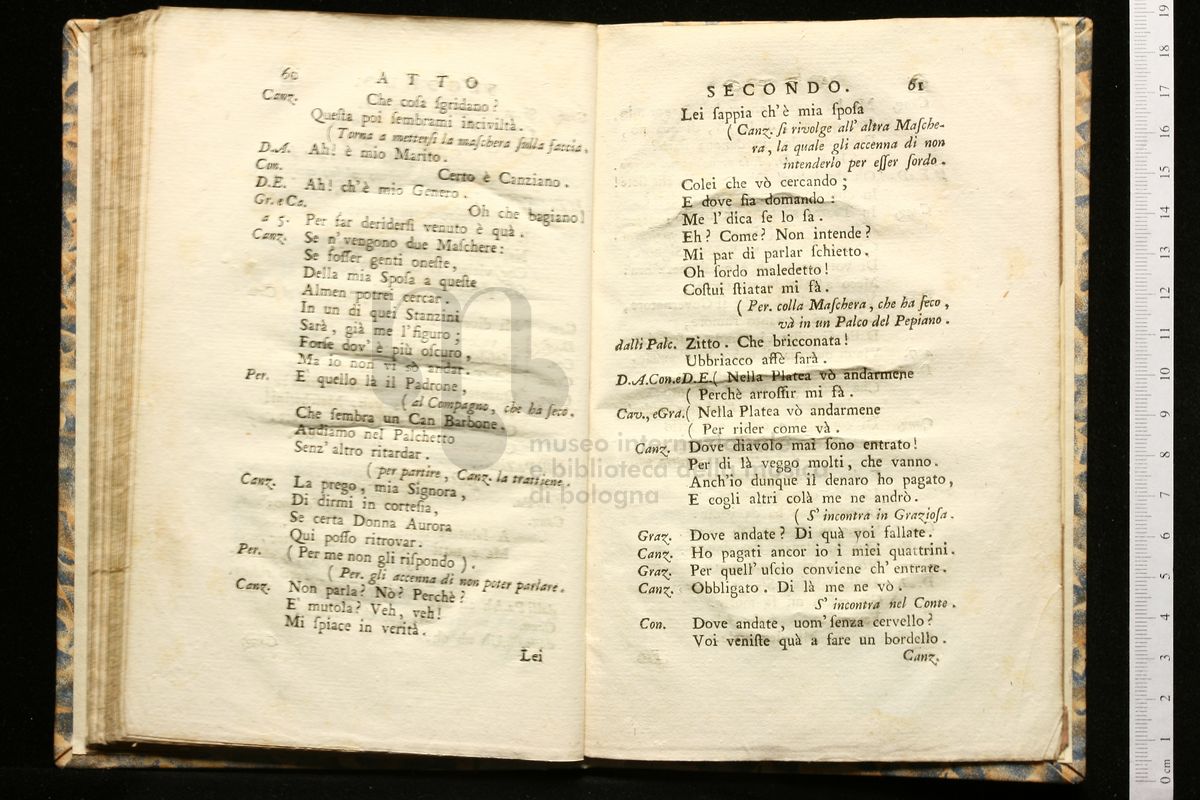 60 ATTO
Canz. Che cosa sgridano?
Questa poi sembrami inciviltà.
( Torna a mettersi la maschera sulla faccia.
D.A. Ah! è mio Marito.
Con. Certo è Canziano.
D.E. Ah! ch'è mio Genero.
Gr. e Ca. Oh che bagiano!
a 5. Per far deridersi venuto è quà.
Canz. Se n'vengono due Maschere:
Se fosser genti oneste,
Della mia Sposa a queste
Almen potrei cercar.
In un di quei Stanzini
Sarà, già me l'figuro;
Forse dov' è più oscuro,
Ma io non vi sò andar.
Per. E' quello là il Padrone,
( al Compagno, che ha seco.
Che sembra un Can Barbone.
Andiamo nel Palchetto
Senz' altro ritardar.
( per partire, Canz. la trattiene.
Canz. La prego, mia Signora,
Di dirmi in cortesia,
Se certa Donna Aurora
Qui posso ritrovar.
Per. ( Per me non gli rispondo ).
( Per. gli accenna di non poter parlare.
Canz. Non parla? Nò? Perchè?
E' mutola? Veh, veh!
Mi spiace in verità.
Lei
SECONDO. 61
Lei sappia ch'è mia sposa
( Canz. si rivolge all' altra Masche-
ra, la quale gli accenna di non
intenderlo per esser sordo.
Colei che vò cercando;
E dove sia domando:
Me l' dica se lo sa.
Eh? Come? Non intende?
Mi par di parlar schietto.
Oh sordo maledetto!
Costui stiatar mi fà.
( Per. colla Maschera, che ha seco,
và in un Palco del Pepiano.
dalli Palc. Zitto. Che bricconata!
Ubbriacco affè sarà.
D.A.Con.eD.E.( Nella Platea vò andarmene
( Perchè arrossir mi fà.
Cav., eGra.( Nella Platea vò andarmene
( Per rider come và.
Canz. Dove diavolo mai sono entrato!
Per di là veggo molti, che vanno.
Anch'io dunque il denaro ho pagato,
E cogli altri colà me ne andrò.
( S' incontra in Graziosa.
Graz. Dove andate? Di quà voi fallate.
Canz. Ho pagati ancor io i miei quattrini.
Graz. Per quell' uscio conviene ch' entrate.
Canz. Obbligato. Di là me ne vò.
S' incontra nel Conte.
Con. Dove andate, uom' senza cervello?
Voi veniste quà a fare un bordello.
Canz.
museo internazionale
e biblioteca della musica
di bologna
0 cm 1 2 3 4 5 6 7 8 9 10 11 12 13 14 15 16 17 18 19